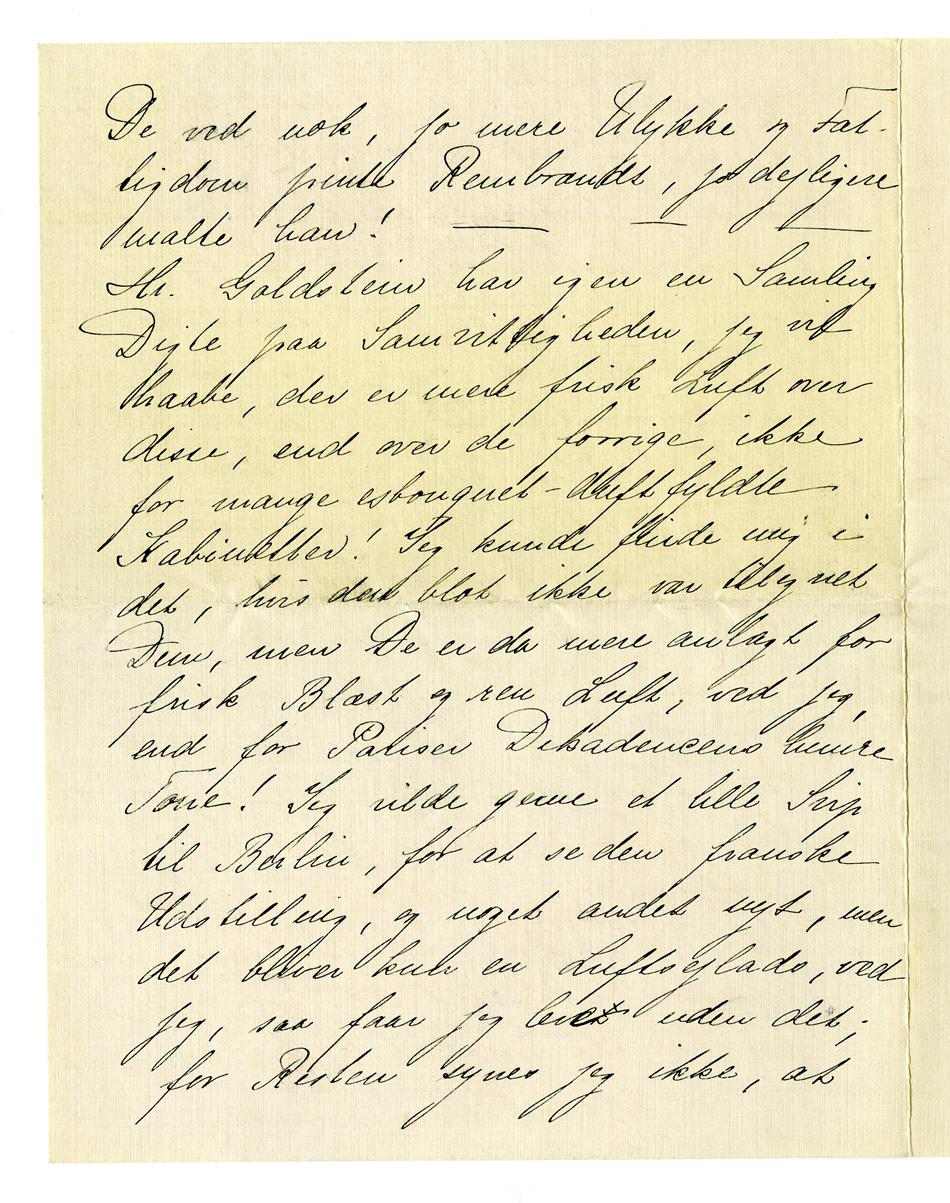 De ved nok, jo mere Ulykke og Fat-
tigdom pinte Rembrandt, jo dejligere
malte han! — — —
Hr. Goldstein har igen en Samling
Digte paa Samvittigheden, jeg vil
haabe, der er mere frisk Luft over
disse, end over de forrige, ikke
for mange esbouquet-duftfyldte
Kabinetter! Jeg kunde finde mig i
det, hvis det blot ikke var tilegnet
Dem, men De er da mere anlagt for
frisk Blæst og ren Luft, ved jeg,
end for Pariser Dekadencens
Tone! Jeg vilde gerne et lille Svip
til Berlin, for at se den franske
Udstilling, og noget andet nyt, men
det bliver kun en Luftsejlads, ved
jeg, saa faar jeg levet uden det;
for Resten synes jeg ikke, at